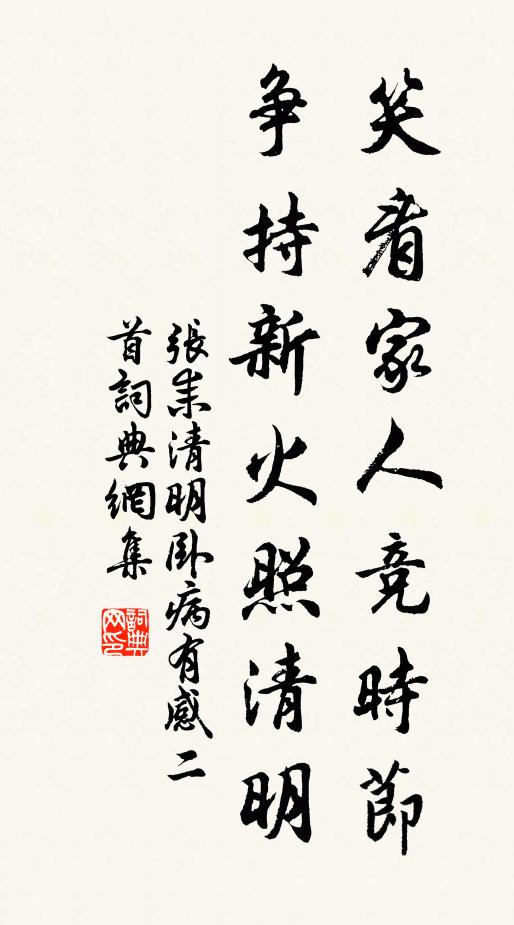 笑看家人竞時節
争持新火照清明
張耒清明卧病有感二
首詞典網集
詞典
网印